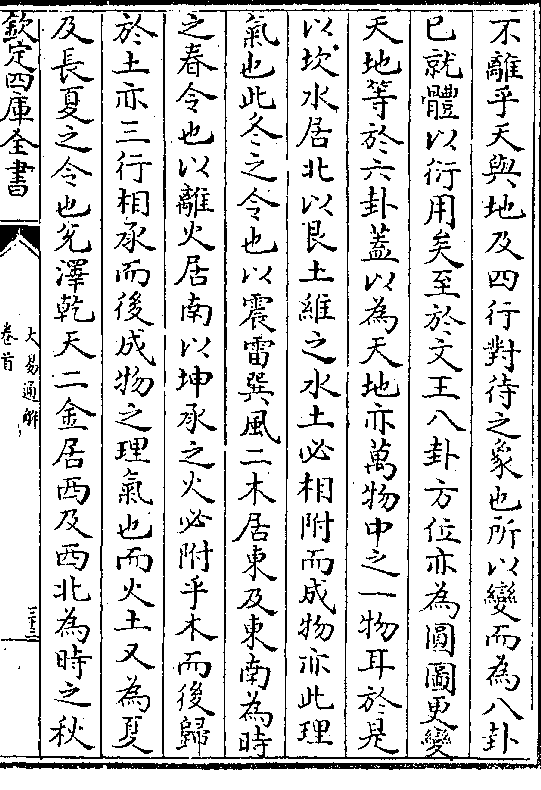 不離乎天與地及四行對待之象也所以變而為八卦
已就體以衍用矣至於文王八卦方位亦為圓圖更變
天地等於六卦蓋以為天地亦萬物中之一物耳於是
以坎水居北以艮土維之水土必相附而成物亦此理
氣也此冬之令也以震雷巽風二木居東及東南為時
之春令也以離火居南以坤承之火必附乎木而後歸
於土亦三行相承而後成物之理氣也而火土又為夏
及長夏之令也兊澤乾天二金居西及西北為時之秋
欽定四庫全書
大易通解
卷首
三十三